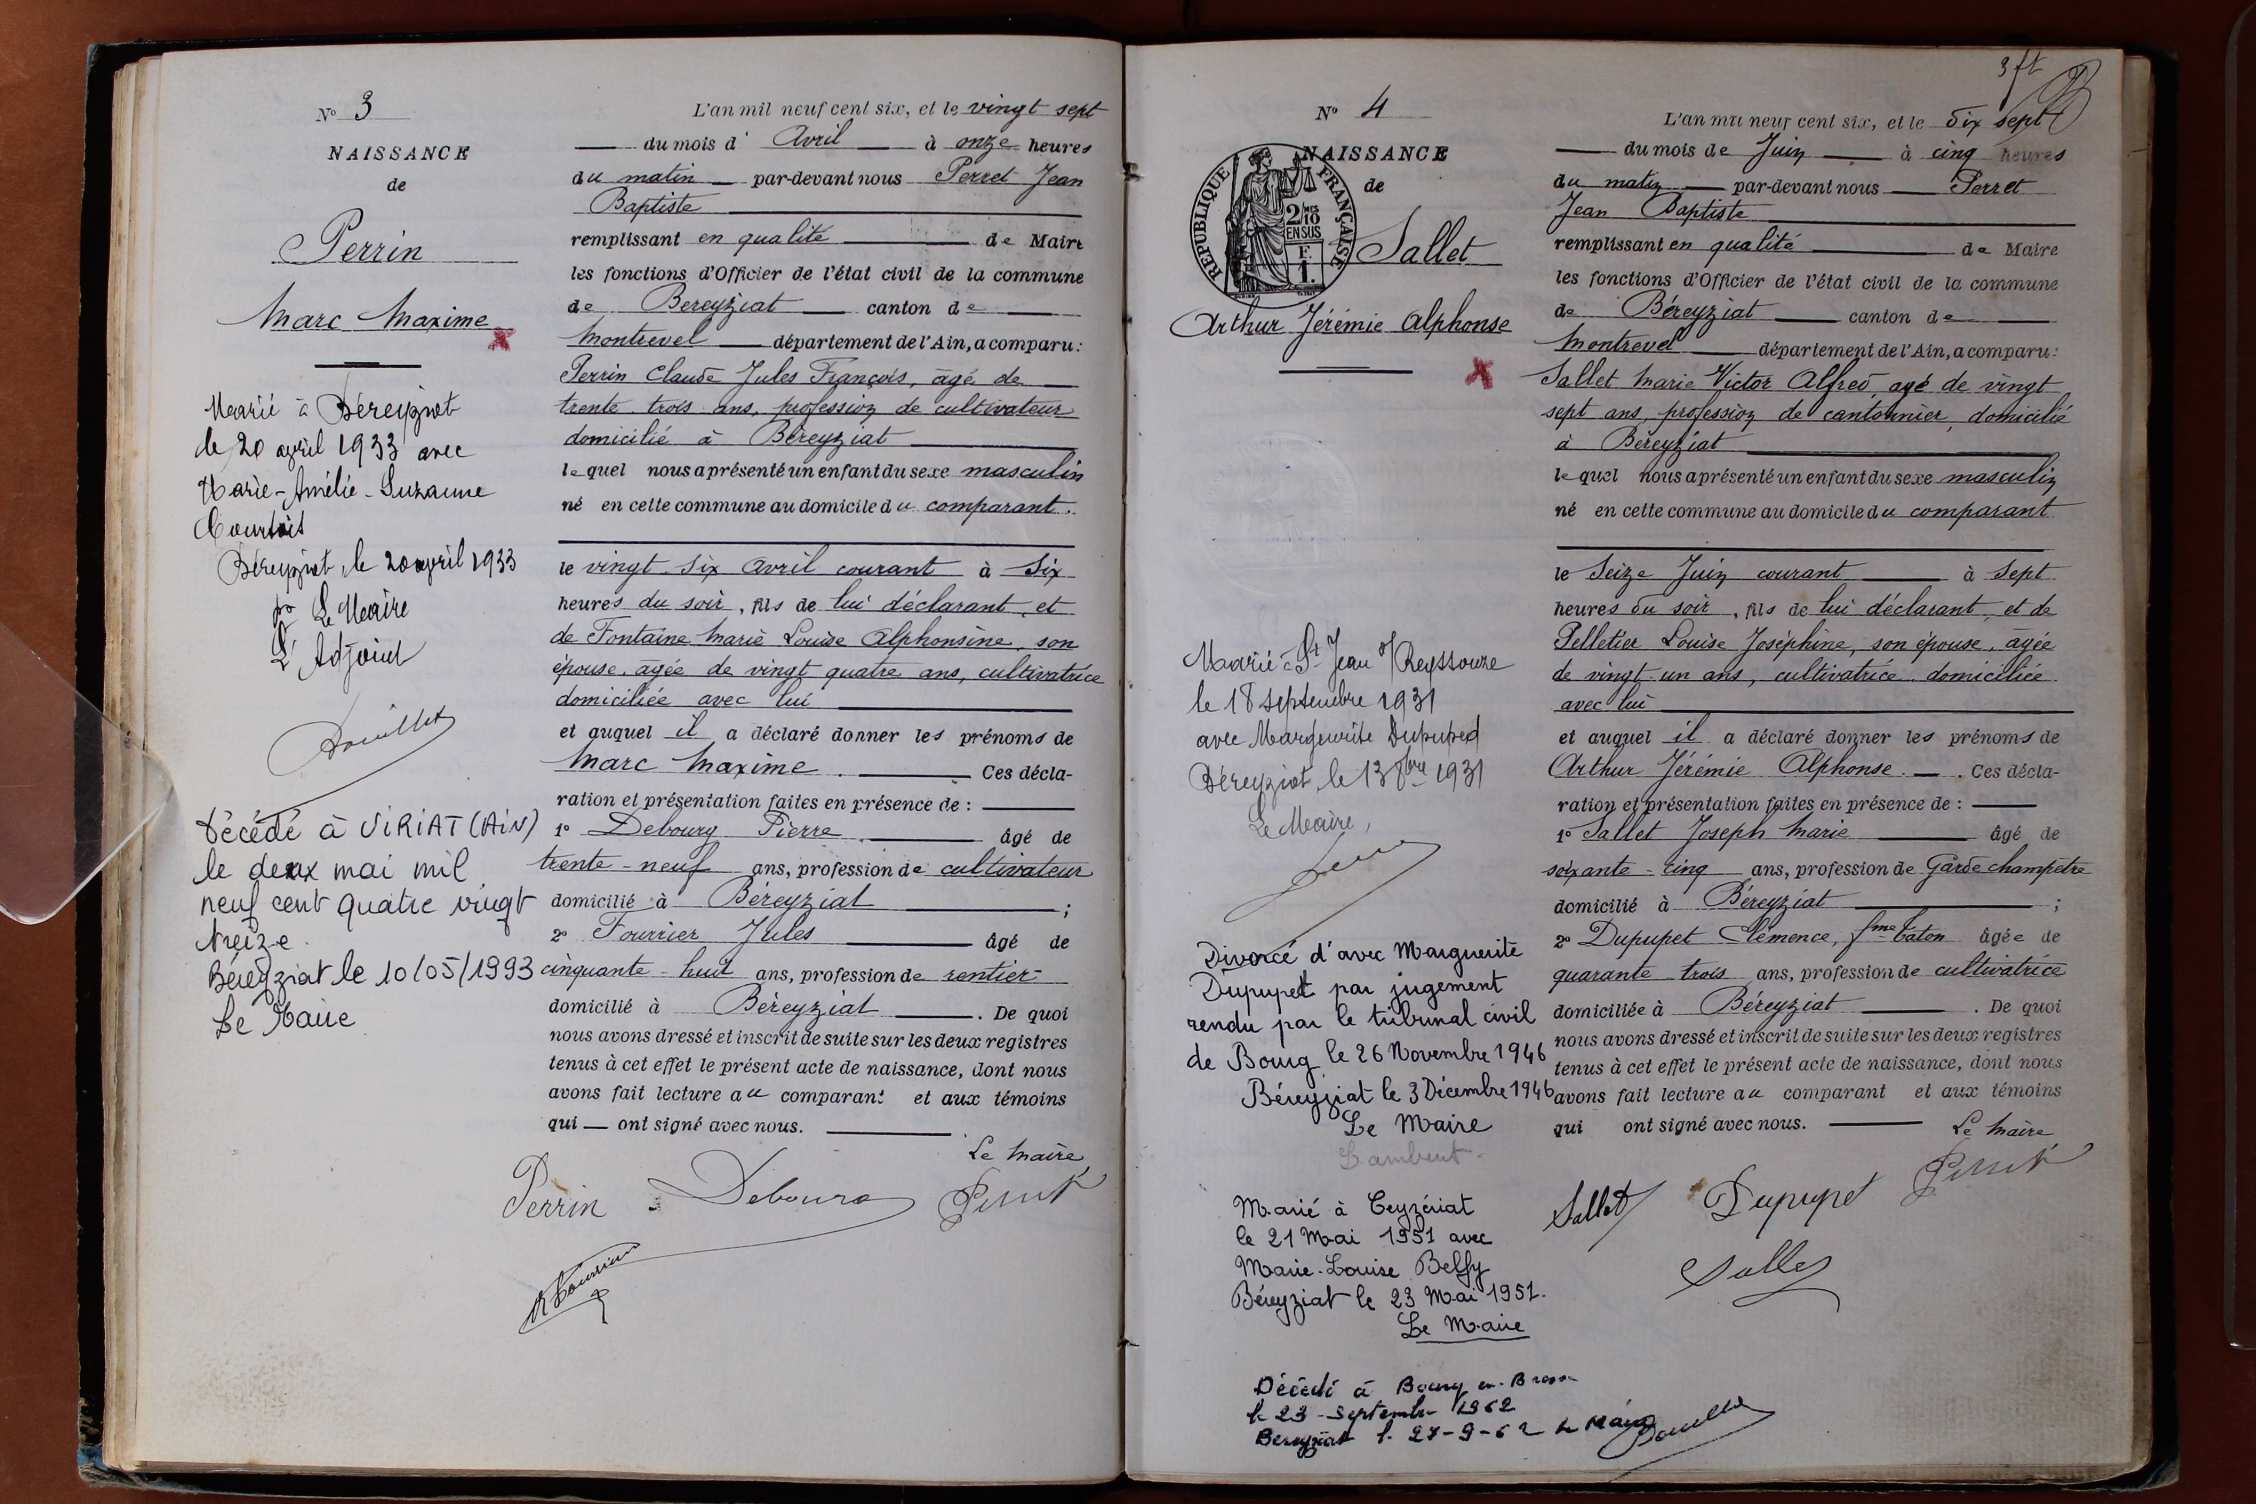 N° 3
NAISSANCE
de
Perrin
Marc Maxime
Marié à Béreyziat
le 20 avril 1933 avec
Marie-Amélie-Suzanne
Courtoit
Béreyziat, le 20 avril 1933
po Le Maire
L'Adjoint
Décédé à VIRIAT (AIN)
le deux mai mil
neuf cent quatre vingt
treize
Béreyziat le 10/05/1993
Le Maire
L'an mil neuf cent six, et le vingt sept
du mois d' Avril à onze heures
du matin par-devant nous Perret Jean
Baptiste
remplissant en qualité de Maire
les fonctions d'Officier de l'état civil de la commune
de Bereyziat canton de
Montrevel département de l'Ain, a comparu:
Perrin Claude Jules François, âgé de
trente trois ans, profession de cultivateur
domicilié à Béreyziat
lequel nous a présenté un enfant du sexe masculin
né en cette commune au domicile du comparant.
le vingt six avril courant à six
heures du soir, fils de lui déclarant, et
de Fontaine Marie Louise Alphonsine, son
épouse, agée de vingt quatre ans, cultivatrice
domiciliée avec lui
et auquel il a déclaré donner les prénoms de
Marc Maxime. Ces décla-
ration et présentation faites en présence de :
1° Debourg Pierre âgé de
trente-neuf ans, profession de cultivateur
domicilié à Béreyziat ;
2° Fourrier Jules âgé de
cinquante-huit ans, profession de rentier
domicilié à Béreyziat . De quoi
nous avons dressé et inscrit de suite sur les deux registres
tenus à cet effet le présent acte de naissance, dont nous
avons fait lecture au comparant et aux témoins
qui — ont signé avec nous.
Le Maire
Perrin Debourg Perret
Fourrier
3 ft
N° 4
NAISSANCE
de
RÉPUBLIQUE FRANÇAISE
2/10 MES
EN SUS
F.
1.
Sallet
Arthur Jérémie Alphonse
Marié à St Jean s/ Reyssouze
le 18 septembre 1931
avec Marguerite Dupuped
Béreyziat, le 13 8bre 1931
Le Maire,
Divorcé d'avec Marguerite
Dupupet par jugement
rendu par le tribunal civil
de Bourg le 26 Novembre 1946
Béreyziat le 3 Décembre 1946
Le Maire
Lambert
Marié à Ceyzériat
le 21 Mai 1951 avec
Marie-Louise Belfy
Béreyziat le 23 Mai 1951.
Le Maire
Décédé à Bourg en Bresse
le 23 Septembre 1962
Bereyziat l. 27-9-62 Le Maire
L'an mil neuf cent six, et le dix sept
du mois de Juin à cinq heures
du matin par-devant nous Perret
Jean Baptiste
remplissant en qualité de Maire
les fonctions d'Officier de l'état civil de la commune
de Béreyziat canton de
Montrevel département de l'Ain, a comparu:
Sallet Marie Victor Alfred, agé de vingt
sept ans, profession de cantonnier, domicilié
à Béreyziat
lequel nous a présenté un enfant du sexe masculin
né en cette commune au domicile du comparant
le seize Juin courant à sept
heures du soir, fils de lui déclarant, et de
Pelletier Louise Joséphine, son épouse, agée
de vingt un ans, cultivatrice domiciliée
avec lui
et auquel il a déclaré donner les prénoms de
Arthur Jérémie Alphonse. Ces décla-
ration et présentation faites en présence de :
1° Sallet Joseph Marie âgé de
soixante-cinq ans, profession de Garde champêtre
domicilié à Béreyziat ;
2° Dupupet Clémence, fme Caton âgée de
quarante trois ans, profession de cultivatrice
domiciliée à Béreyziat . De quoi
nous avons dressé et inscrit de suite sur les deux registres
tenus à cet effet le présent acte de naissance, dont nous
avons fait lecture au comparant et aux témoins
qui ont signé avec nous.
Le Maire
Sallet Dupupet Perret
Sallet